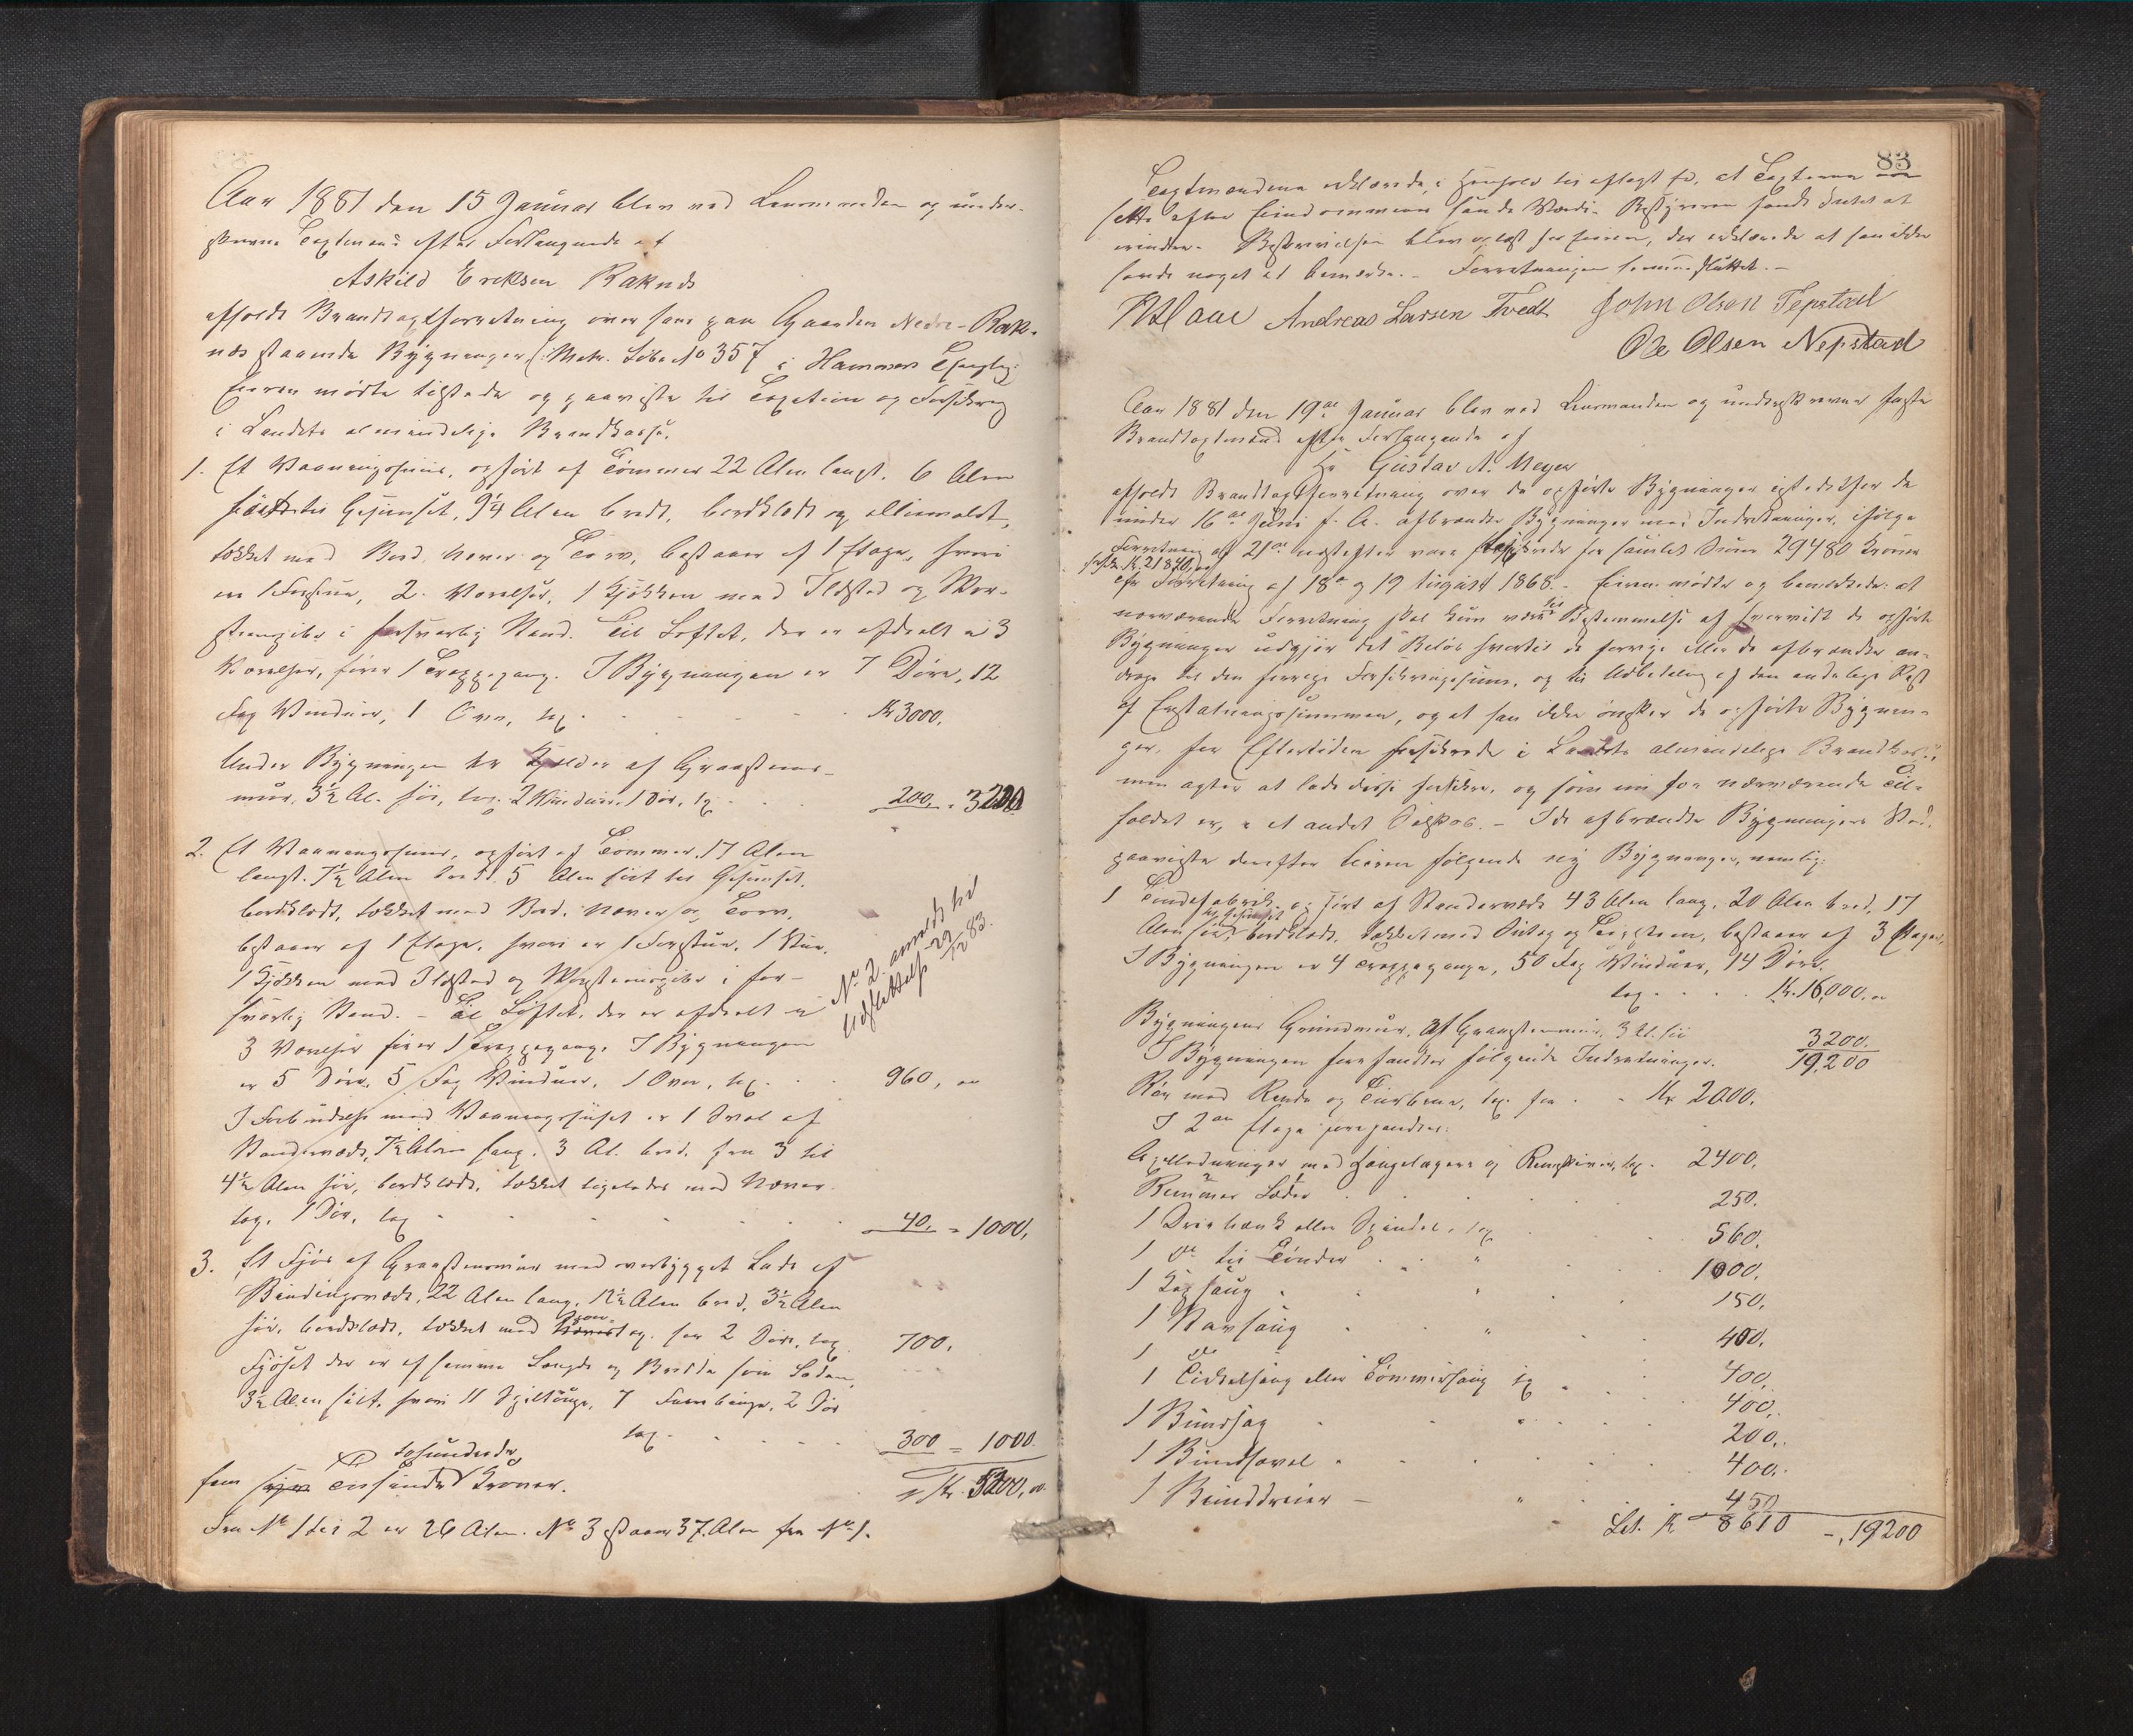 Aar 1881 den 15 Januar blev ved Lensmanden og under-
skrevne Taxtmænd efter Forlangende af
Askild Eriksen Raknes
afholdt Brandtaxtforretning over hans paa Gaarden Nedre-Rak-
næs staaende Bygninger (: Matr. Løbe No 357 i Hammers Thinglag
Eieren mødte tilstede og paaviste til Taxation og Forsikring
i Landets almindelige Brandkasse.
1. Et Vaaningshuus, opført af Tømmer 22 Alen langt, 6 Alen
høit til Gesimset, 9¼ Alen bredt, bordklædt og oliemalet,
tækket med Bord, Næver og Torv, bestaaer af 1 Etage, hvori
er 1 Forstue, 2 Værelser, 1 Kjøkken med Ildsted og Skor-
stenspibe i forsvarlig Stand. Til Loftet, der er afdeelt i 3
Værelser, fører 1 Trappegang. I Bygningen er 7 Døre, 12
Fag Vinduer, 1 Ovn, tax. Kr 3000,
Under Bygningen er Kjelder af Graasteens-
muur, 3½ Al. høi, 2 Vinduer, 1 Dør, tx 200, = 3200
2. Et Vaaningshuus, opført af Tømmer, 17 Alen
langt, 7½ Alen bredt, 5 Alen høit til Gesimset,
bordklædt, tækket med Bord, Næver og Torv,
bestaaer af 1 Etage, hvori er 1 Forstue, 1 Stue,
1 Kjøkken med Ildsted og Skorsteenspibe i for-
svarlig Stand. - Til Loftet, der er afdeelt i
3 Værelser fører 1 Trappegang. I Bygningen
er 5 Døre, 5 Fag Vinduer, 1 Ovn, tax. 960, "
No 2 anmeldt til
Udslettelse 22/12 83.
I Forbindelse med Vaaningshuset er 1 Sval af
Standerværk, 7½ Alen lang, 3 Al. bred, fra 3 til
4½ Alen høi, bordklædt, tækket ligeledes med Næver-
tag, 1 Dør, tax 40, = 1000,
3. Et Fjøs af Graasteensmuur med overbygget Lade af
Bindingsværk, 22 Alen lang, 12½ Alen bred, 3½ Alen
høi, bordklædt, tækket med tag. har 2 Døre, tax 700,
Fjøset der er af samme Længde og Bredde som Laden,
3½ Alen høit, hvori 11 Spiltouge, 7 Faarebinge, 2 Dør
tax 300 = 1000
Kr. 5200,
tohundrede
fem Tusinde Kroner.
Fra No 1 til 2 er 26 Alen. No 3 staaer 37 Alen fra No 1.
83
Taxtmændene erklærede, i Henhold til aflagt Ed, at Taxterne ere
satte efter Eiendommenes sande Værdi. Bestyreren fandt Intet at
erindre. Beskrivelsen blev oplæst for Eieren, der erklærede at han ikke
havde noget at bemærke. - Forretningen hermed sluttet. -
Andreas Larsen Tvedt John Olsen Tepstad
Ole Olsen Nepstad
Aar 1881 den 19de Januar blev ved Lensmanden og underskrevne faste
Brandtaxtmænd efter Forlangende af
Hr Gustav A. Meyer
afholdt Brandtaxtforretning over de opførte Bygninger istedetfor de
under 16de Juni f. A. afbrændte Bygninger med Indretninger, ifølge
Forretning af 21de næstefter vare forsikrede for samlet Sum 29480 Kroner
Kr. 21870,
efter Forretning af 18de og 19 August 1868. - Eieren mødte og bemærkede: at
nærværende Forretning skal kun være til Bestemmelse af hvorvidt de opførte
Bygninger udgjør det Beløb hvortil de forrige eller de afbrændte an-
drage til den forrige Forsikringssum, og til Udbetaling af den endelige Rest
af Erstatningssummen, og at han ikke ønsker de opførte Bygnin-
ger, for Eftertiden forsikrede i Landets almindelige Brandkasse,
men agter at lade disse forsikre, og som nu for nærværende Til-
fældet er, i et andet Selskab. - I de afbrændte Bygningers Sted,
paaviste derefter Eieren følgende ny Bygninger, nemlig:
1 Tøndefabrik, opført af Standerværk 43 Alen lang, 20 Alen bred, 17
til Gesimset
Alen høi, bordklædt, tækket med Sutag og Teigsteen, bestaaer af 3 Etager,
I Bygningen er 4 Trappegange, 50 Fag Vinduer, 14 Døre,
tax Kr. 16,000, "
Bygningens Grundmuur, af Graasteensmuur, 3 Al. høi 3200.
I Bygningen forefandtes følgende Indretninger. 19,200
Rør med Rende og Turbine, tax. for Kr 2000.
I 2den Etage forefandtes:
Axelledninger med Hængelagere og Remskiver, tax. 2400,
Remmer Læder 250.
1 Dreiebænk eller Spindel, tax 560.
1 do til Tønder " 1000.
1 Kapsaug " 150.
1 Stavsaug " 400.
1 do 400,
1 Cirkelsaug eller Tømmersaug tx 400,
1 Bundsag " 200,
1 Bundhøvel 400.
1 Bunddreier - " 450
Lat. Kr 8610 -, 19200